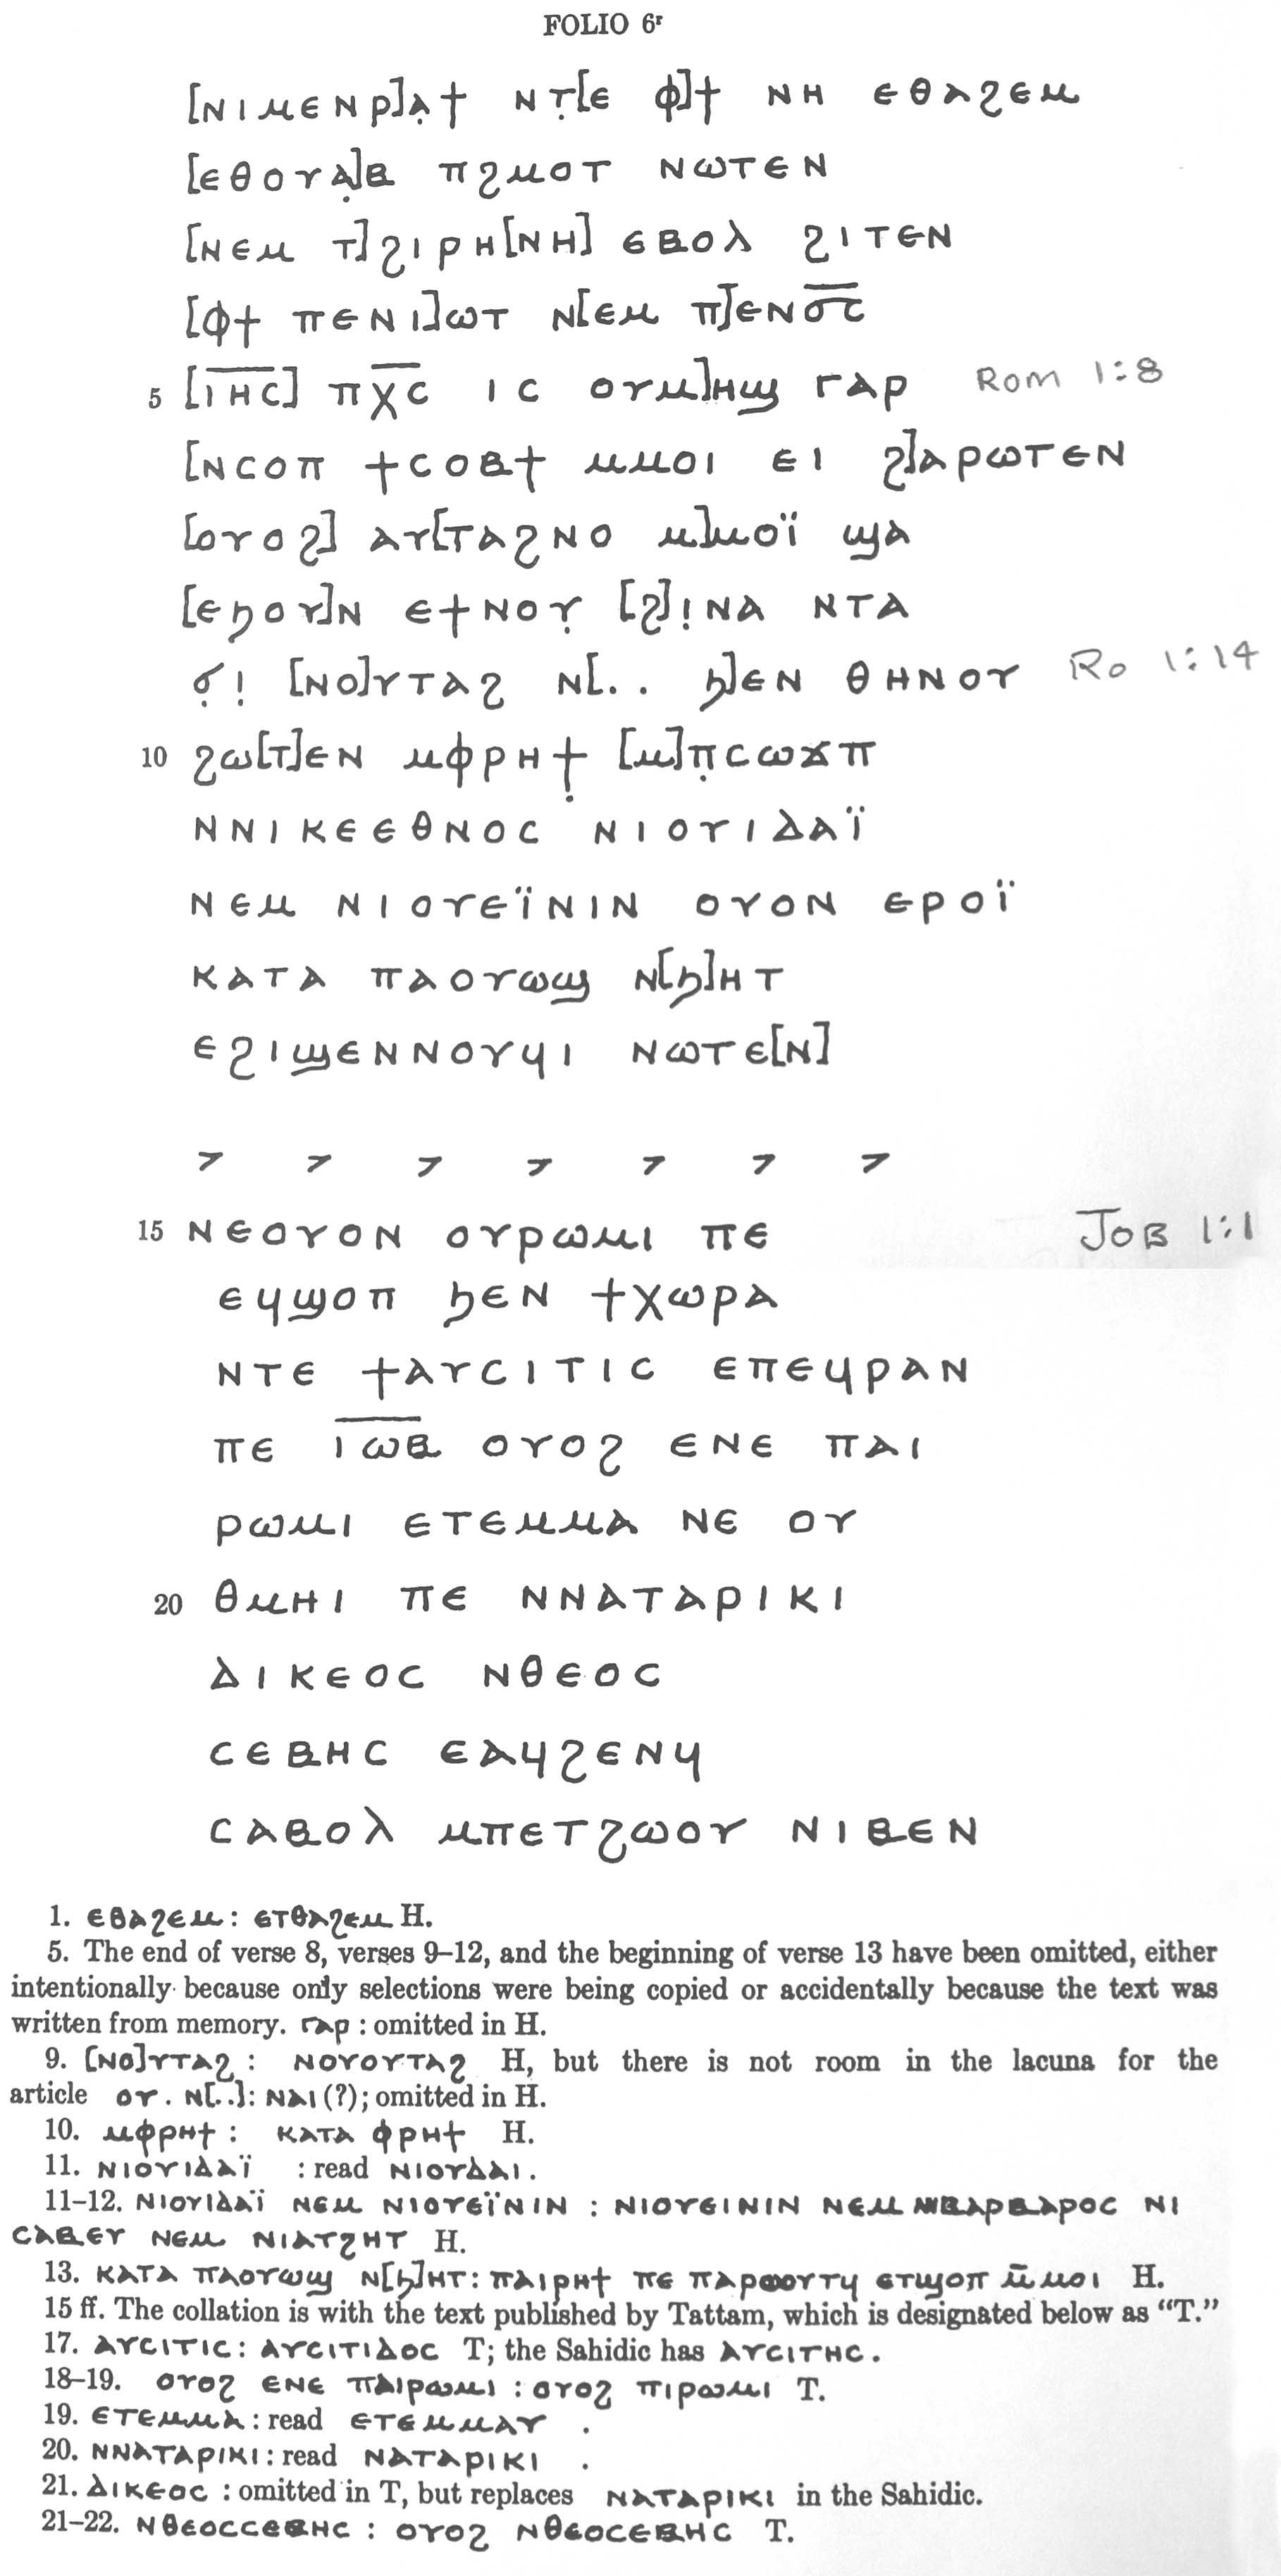 FOLIO 6ʳ
[ⲛⲓⲙⲉⲛⲣ]ⲁ̣ϯ ⲛⲧ̣[ⲉ ⲫ]ϯ ⲛⲏ ⲉⲑⲁϩⲉⲙ
[ⲉⲑⲟⲩⲁ̣]ⲃ ⲡϩⲙⲟⲧ ⲛⲱⲧⲉⲛ
[ⲛⲉⲙ ⲧ]ϩⲓⲣⲏ[ⲛⲏ] ⲉⲃⲟⲗ ϩⲓⲧⲉⲛ
[ⲫϯ ⲡⲉⲛⲓ]ⲱⲧ ⲛ[ⲉⲙ ⲡ]ⲉⲛϭ̅ⲥ̅
5 [ⲓ̅ⲏ̅ⲥ̅] ⲡⲭ̅ⲥ̅ ⲓⲥ ⲟⲩⲙ]ⲏϣ ⲅⲁⲣ Rom 1:8
[ⲛⲥⲟⲡ ϯⲥⲟⲃϯ ⲙⲙⲟⲓ ⲉⲓ ϩ]ⲁⲣⲱⲧⲉⲛ
[ⲟⲩⲟϩ] ⲁⲩ[ⲧⲁϩⲛⲟ ⲙ]ⲙⲟⲓ̈ ϣⲁ
[ⲉϧⲟⲩ]ⲛ ⲉϯⲛⲟⲩ̣ [ϩ]ⲓ̣ⲛⲁ ⲛⲧⲁ
ϭ̣ⲓ̣ [ⲛⲟ]ⲩⲧⲁϩ ⲛ[.. ϧ]ⲉⲛ ⲑⲏⲛⲟⲩ Ro 1:14
10 ϩⲱ[ⲧ]ⲉⲛ ⲙⲫⲣⲏϯ̣ [ⲙ]ⲡ̣ⲥⲱϫⲡ
ⲛⲛⲓⲕⲉⲉⲑⲛⲟⲥ ⲛⲓⲟⲩⲓⲇⲁⲓ̈
ⲛⲉⲙ ⲛⲓⲟⲩⲉⲓ̈ⲛⲓⲛ ⲟⲩⲟⲛ ⲉⲣⲟⲓ̈
ⲕⲁⲧⲁ ⲡⲁⲟⲩⲱϣ ⲛ[ϧ]ⲏⲧ
ⲉϩⲓϣⲉⲛⲛⲟⲩϥⲓ ⲛⲱⲧⲉ[ⲛ]
> > > > > > >
15 ⲛⲉⲟⲩⲟⲛ ⲟⲩⲣⲱⲙⲓ ⲡⲉ Job 1:1
ⲉϥϣⲟⲡ ϧⲉⲛ ϯⲭⲱⲣⲁ
ⲛⲧⲉ ϯⲁⲩⲥⲓⲧⲓⲥ ⲉⲡⲉϥⲣⲁⲛ
ⲡⲉ ⲓ̅ⲱ̅ⲃ̅ ⲟⲩⲟϩ ⲉⲛⲉ ⲡⲁⲓ
ⲣⲱⲙⲓ ⲉⲧⲉⲙⲙⲁ ⲛⲉ ⲟⲩ
20 ⲑⲙⲏⲓ ⲡⲉ ⲛⲛⲁⲧⲁⲣⲓⲕⲓ
ⲇⲓⲕⲉⲟⲥ ⲛⲑⲉⲟⲥ
ⲥⲉⲃⲏⲥ ⲉⲁϥϩⲉⲛϥ
ⲥⲁⲃⲟⲗ ⲙⲡⲉⲧϩⲱⲟⲩ ⲛⲓⲃⲉⲛ
1. ⲉⲑⲁϩⲉⲙ: ⲉⲧⲑⲁϩⲉⲙ H.
5. The end of verse 8, verses 9–12, and the beginning of verse 13 have been omitted, either
intentionally because only selections were being copied or accidentally because the text was
written from memory. ⲅⲁⲣ: omitted in H.
9. [ⲛⲟ]ⲩⲧⲁϩ: ⲛⲟⲩⲟⲩⲧⲁϩ H, but there is not room in the lacuna for the
article ⲟⲩ. ⲛ[..]: ⲛⲁⲓ (?); omitted in H.
10. ⲙⲫⲣⲏϯ: ⲕⲁⲧⲁ ⲫⲣⲏϯ H.
11. ⲛⲓⲟⲩⲓⲇⲁⲓ̈ : read ⲛⲓⲟⲩⲇⲁⲓ.
11–12. ⲛⲓⲟⲩⲓⲇⲁⲓ̈ ⲛⲉⲙ ⲛⲓⲟⲩⲉⲓ̈ⲛⲓⲛ : ⲛⲓⲟⲩⲉⲓⲛⲓⲛ ⲛⲉⲙ ⲛⲓⲃⲁⲣⲃⲁⲣⲟⲥ ⲛⲓ
ⲥⲁⲃⲉⲩ ⲛⲉⲙ ⲛⲓⲁⲧϩⲏⲧ H.
13. ⲕⲁⲧⲁ ⲡⲁⲟⲩⲱϣ ⲛ[ϧ]ⲏⲧ: ⲡⲁⲓⲣⲏϯ ⲡⲉ ⲡⲁⲣⲱⲟⲩⲧϥ ⲉⲧϣⲟⲡ ⲙ̅ⲙⲟⲓ H.
15 ff. The collation is with the text published by Tattam, which is designated below as “T.”
17. ⲁⲩⲥⲓⲧⲓⲥ: ⲁⲩⲥⲓⲧⲓⲇⲟⲥ T; the Sahidic has ⲁⲩⲥⲓⲧⲏⲥ.
18–19. ⲟⲩⲟϩ ⲉⲛⲉ ⲡⲁⲓⲣⲱⲙⲓ : ⲟⲩⲟϩ ⲡⲓⲣⲱⲙⲓ T.
19. ⲉⲧⲉⲙⲙⲁ: read ⲉⲧⲉⲙⲙⲁⲩ .
20. ⲛⲛⲁⲧⲁⲣⲓⲕⲓ: read ⲛⲁⲧⲁⲣⲓⲕⲓ .
21. ⲇⲓⲕⲉⲟⲥ : omitted in T, but replaces ⲛⲁⲧⲁⲣⲓⲕⲓ in the Sahidic.
21–22. ⲛⲑⲉⲟⲥⲥⲉⲃⲏⲥ : ⲟⲩⲟϩ ⲛⲑⲉⲟⲥⲉⲃⲏⲥ T.